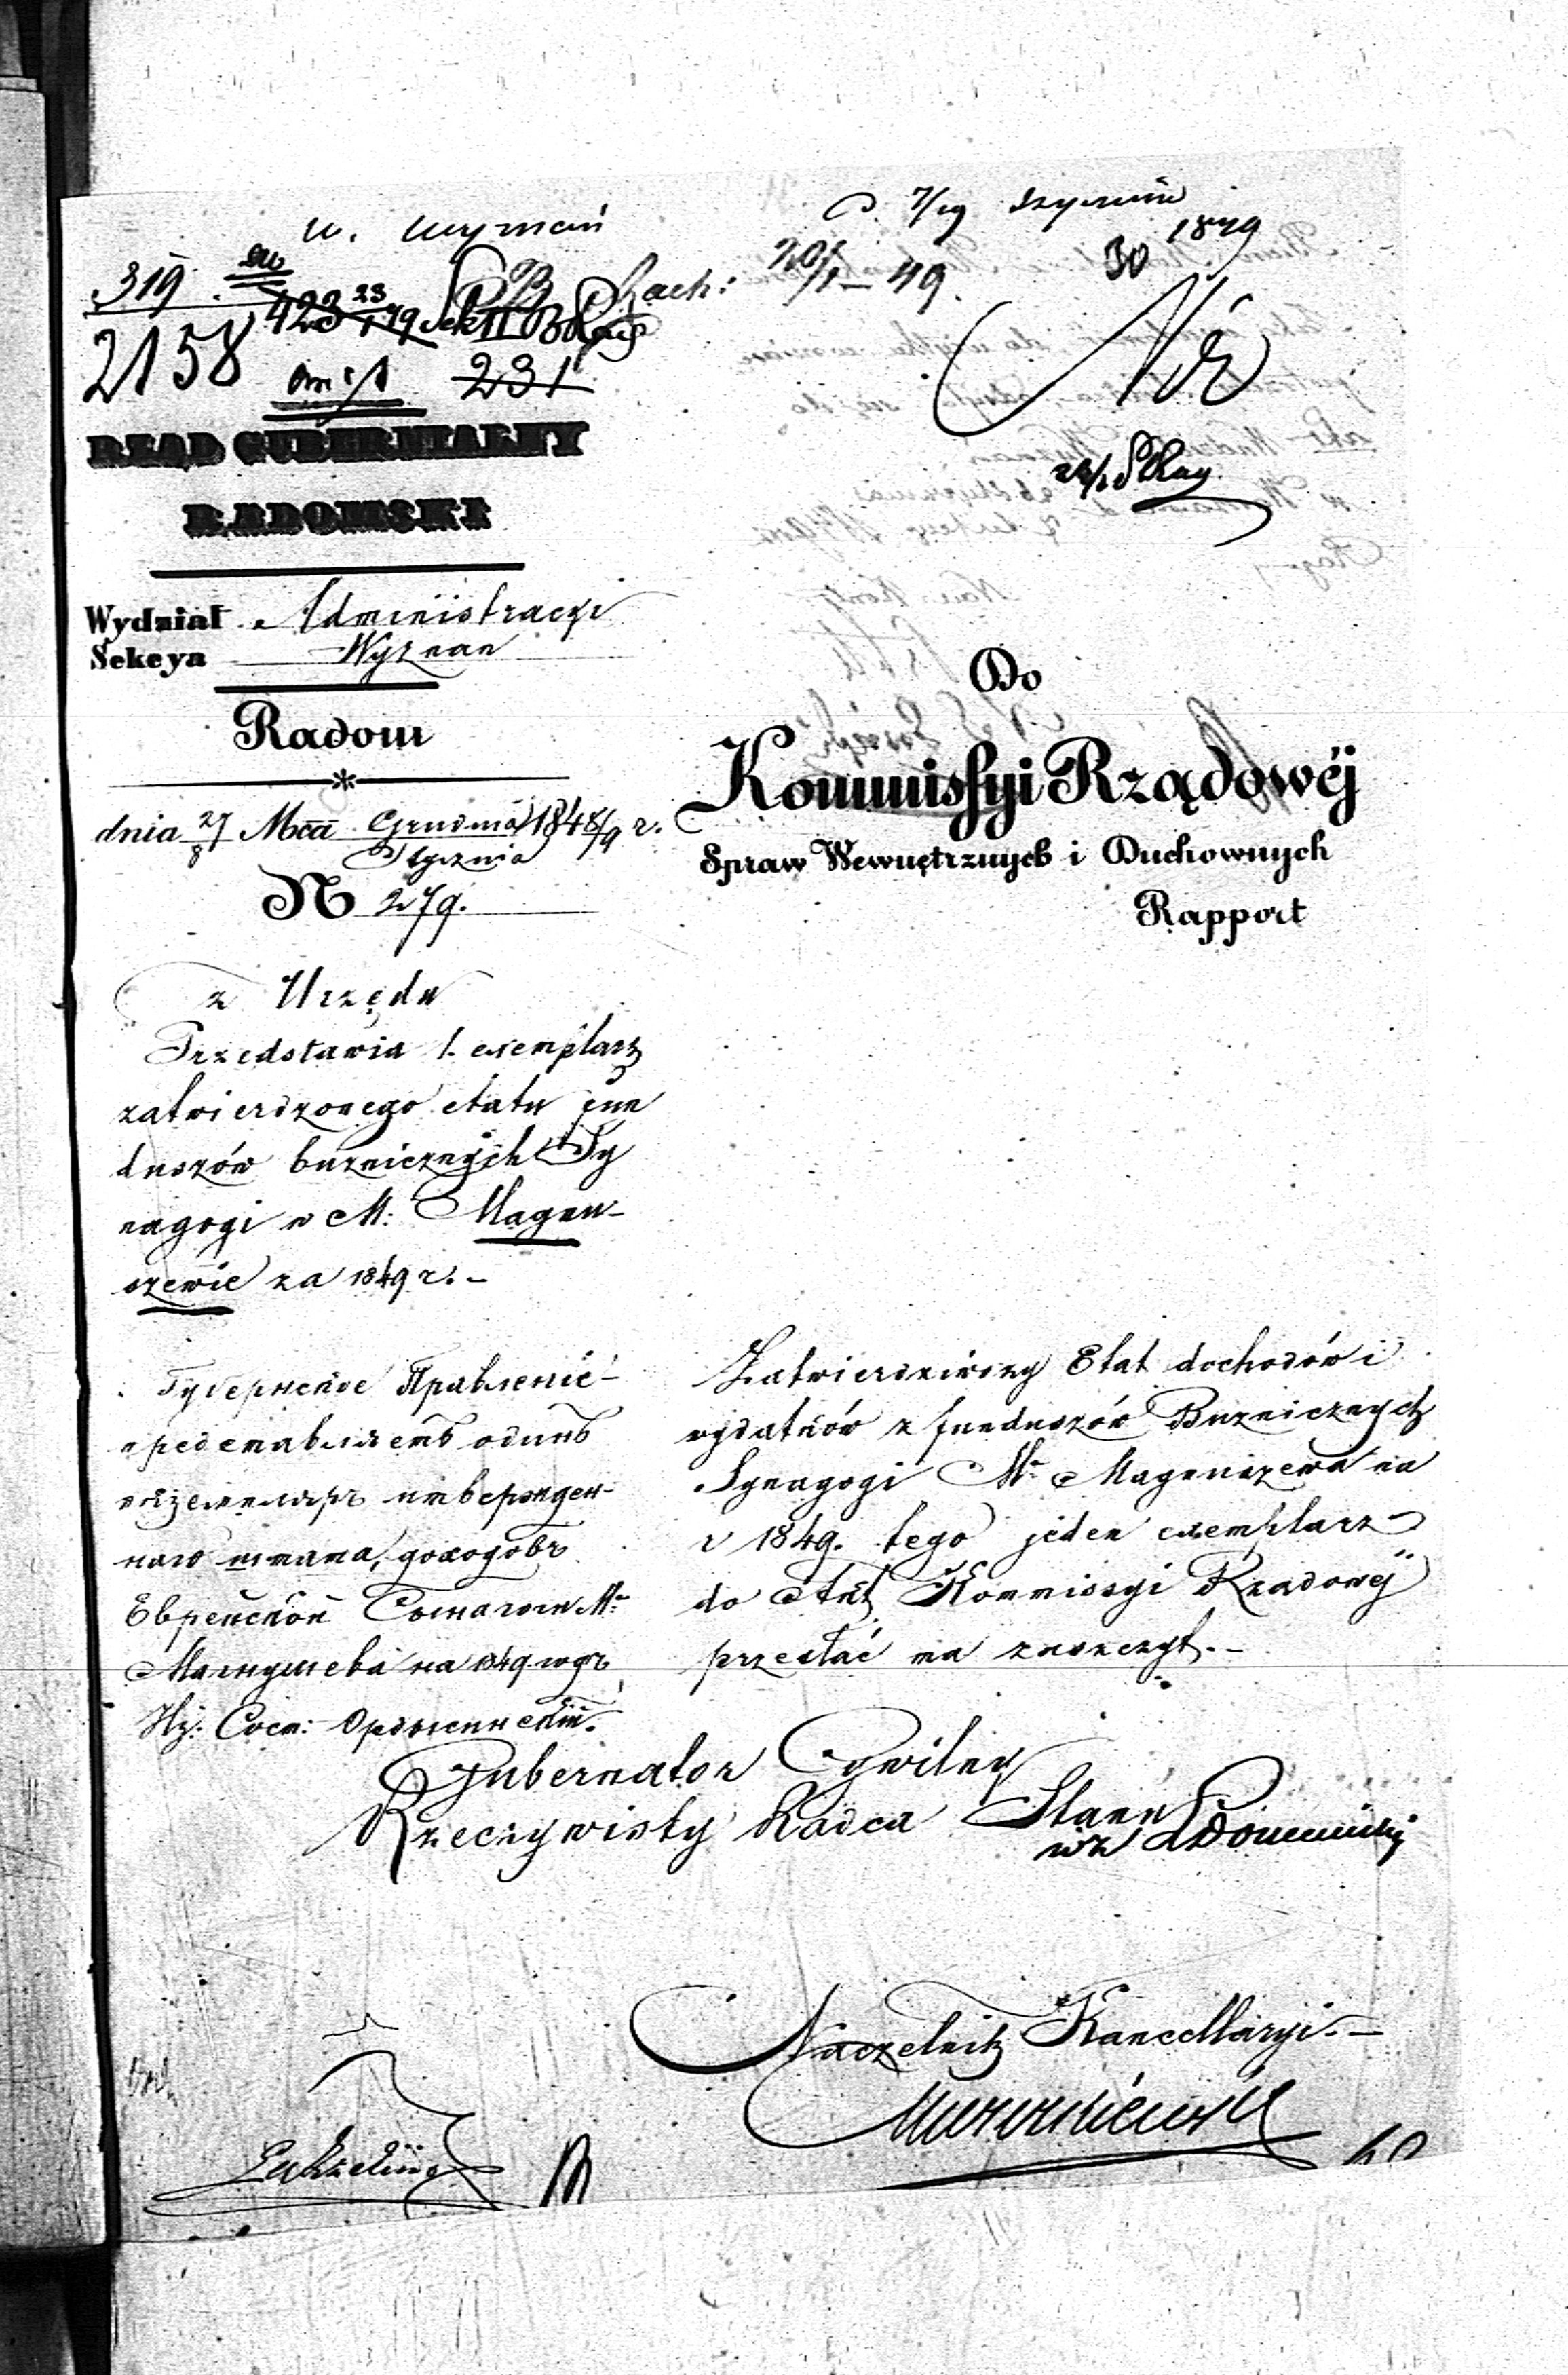 W. Wyznań
d. 7/19 Stycznia
1849
319
423 23/1 49 Sek II
Rach: 20/1 – 49.
30
2158
231
RZĄD GUBERNIALNY
RADOMSKI
Wydział Administracyi
Sekcya Wyznan
Radom
dnia 27/8 Mca Grudnia/Stycznia 1848/9 r.
N 279.
Do
Kommissyi Rządowéj
Spraw Wewnętrznych i Duchownych
Rapport
z Urzędu
Przedstawia 1. exemplarz
zatwierdzonego etatu fun
duszów buzniczných Sy
nagogi w M: Magnu-
szewie za 1849 r. –
Губернское Правленіе
представляетъ одинъ
екземпляръ утвержден-
наго штата, доходовъ
Еврейской Сонагоги М:
Магнушева на 1849 годъ
Из: Сост:
Zatwierdziwszy Etat dochodów i
wydatków z funduszów Buznicznych
Synagogi M: Magnuszewa na
r 1849. tego jeden exemplarz
do Akt Kommissyi Rządowéj
przesłać ma zaszczyt. –
Gubernator Cywilny
Rzeczywisty Radca Stanu
wz
Naczelnik Kancellaryi. –